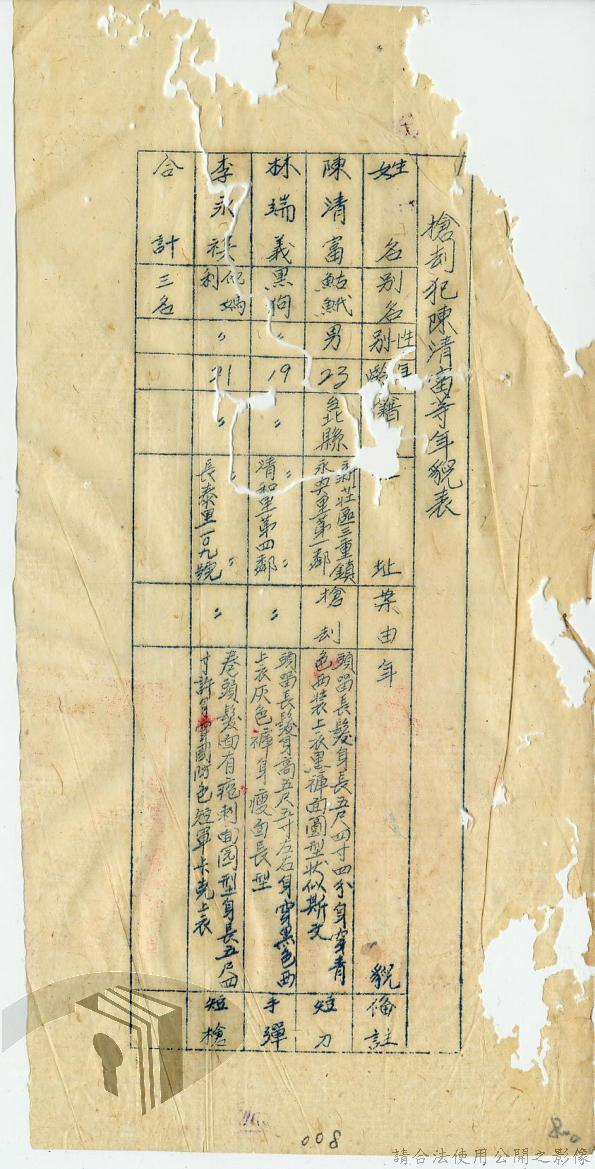 槍刦犯陳清富等年貌表
姓名 別名 性別 年齡 籍 址 案由 年貌 偹註
陳清富 鮎鮘 男 23 台北縣 新莊區三重鎮永興里第一鄰 槍刦 頭留長髮身長五尺四寸四分身穿青色西裝上衣黑褲面圓型狀似斯文 短刀
林瑞義 黑狗 〃 19 〃 〃 清和里第四鄰 〃 頭留長髮身高五尺五寸左右身穿黑色西上衣灰色褲身瘦面長型 手彈
李永祿 利 〃 21 〃 〃 長泰里一〇九號 〃 卷頭髮面有疱刺面园型身長五尺四寸許身穿國防色短軍卡克上衣 短槍
合計 三名
008
800
請合法使用公開之影像